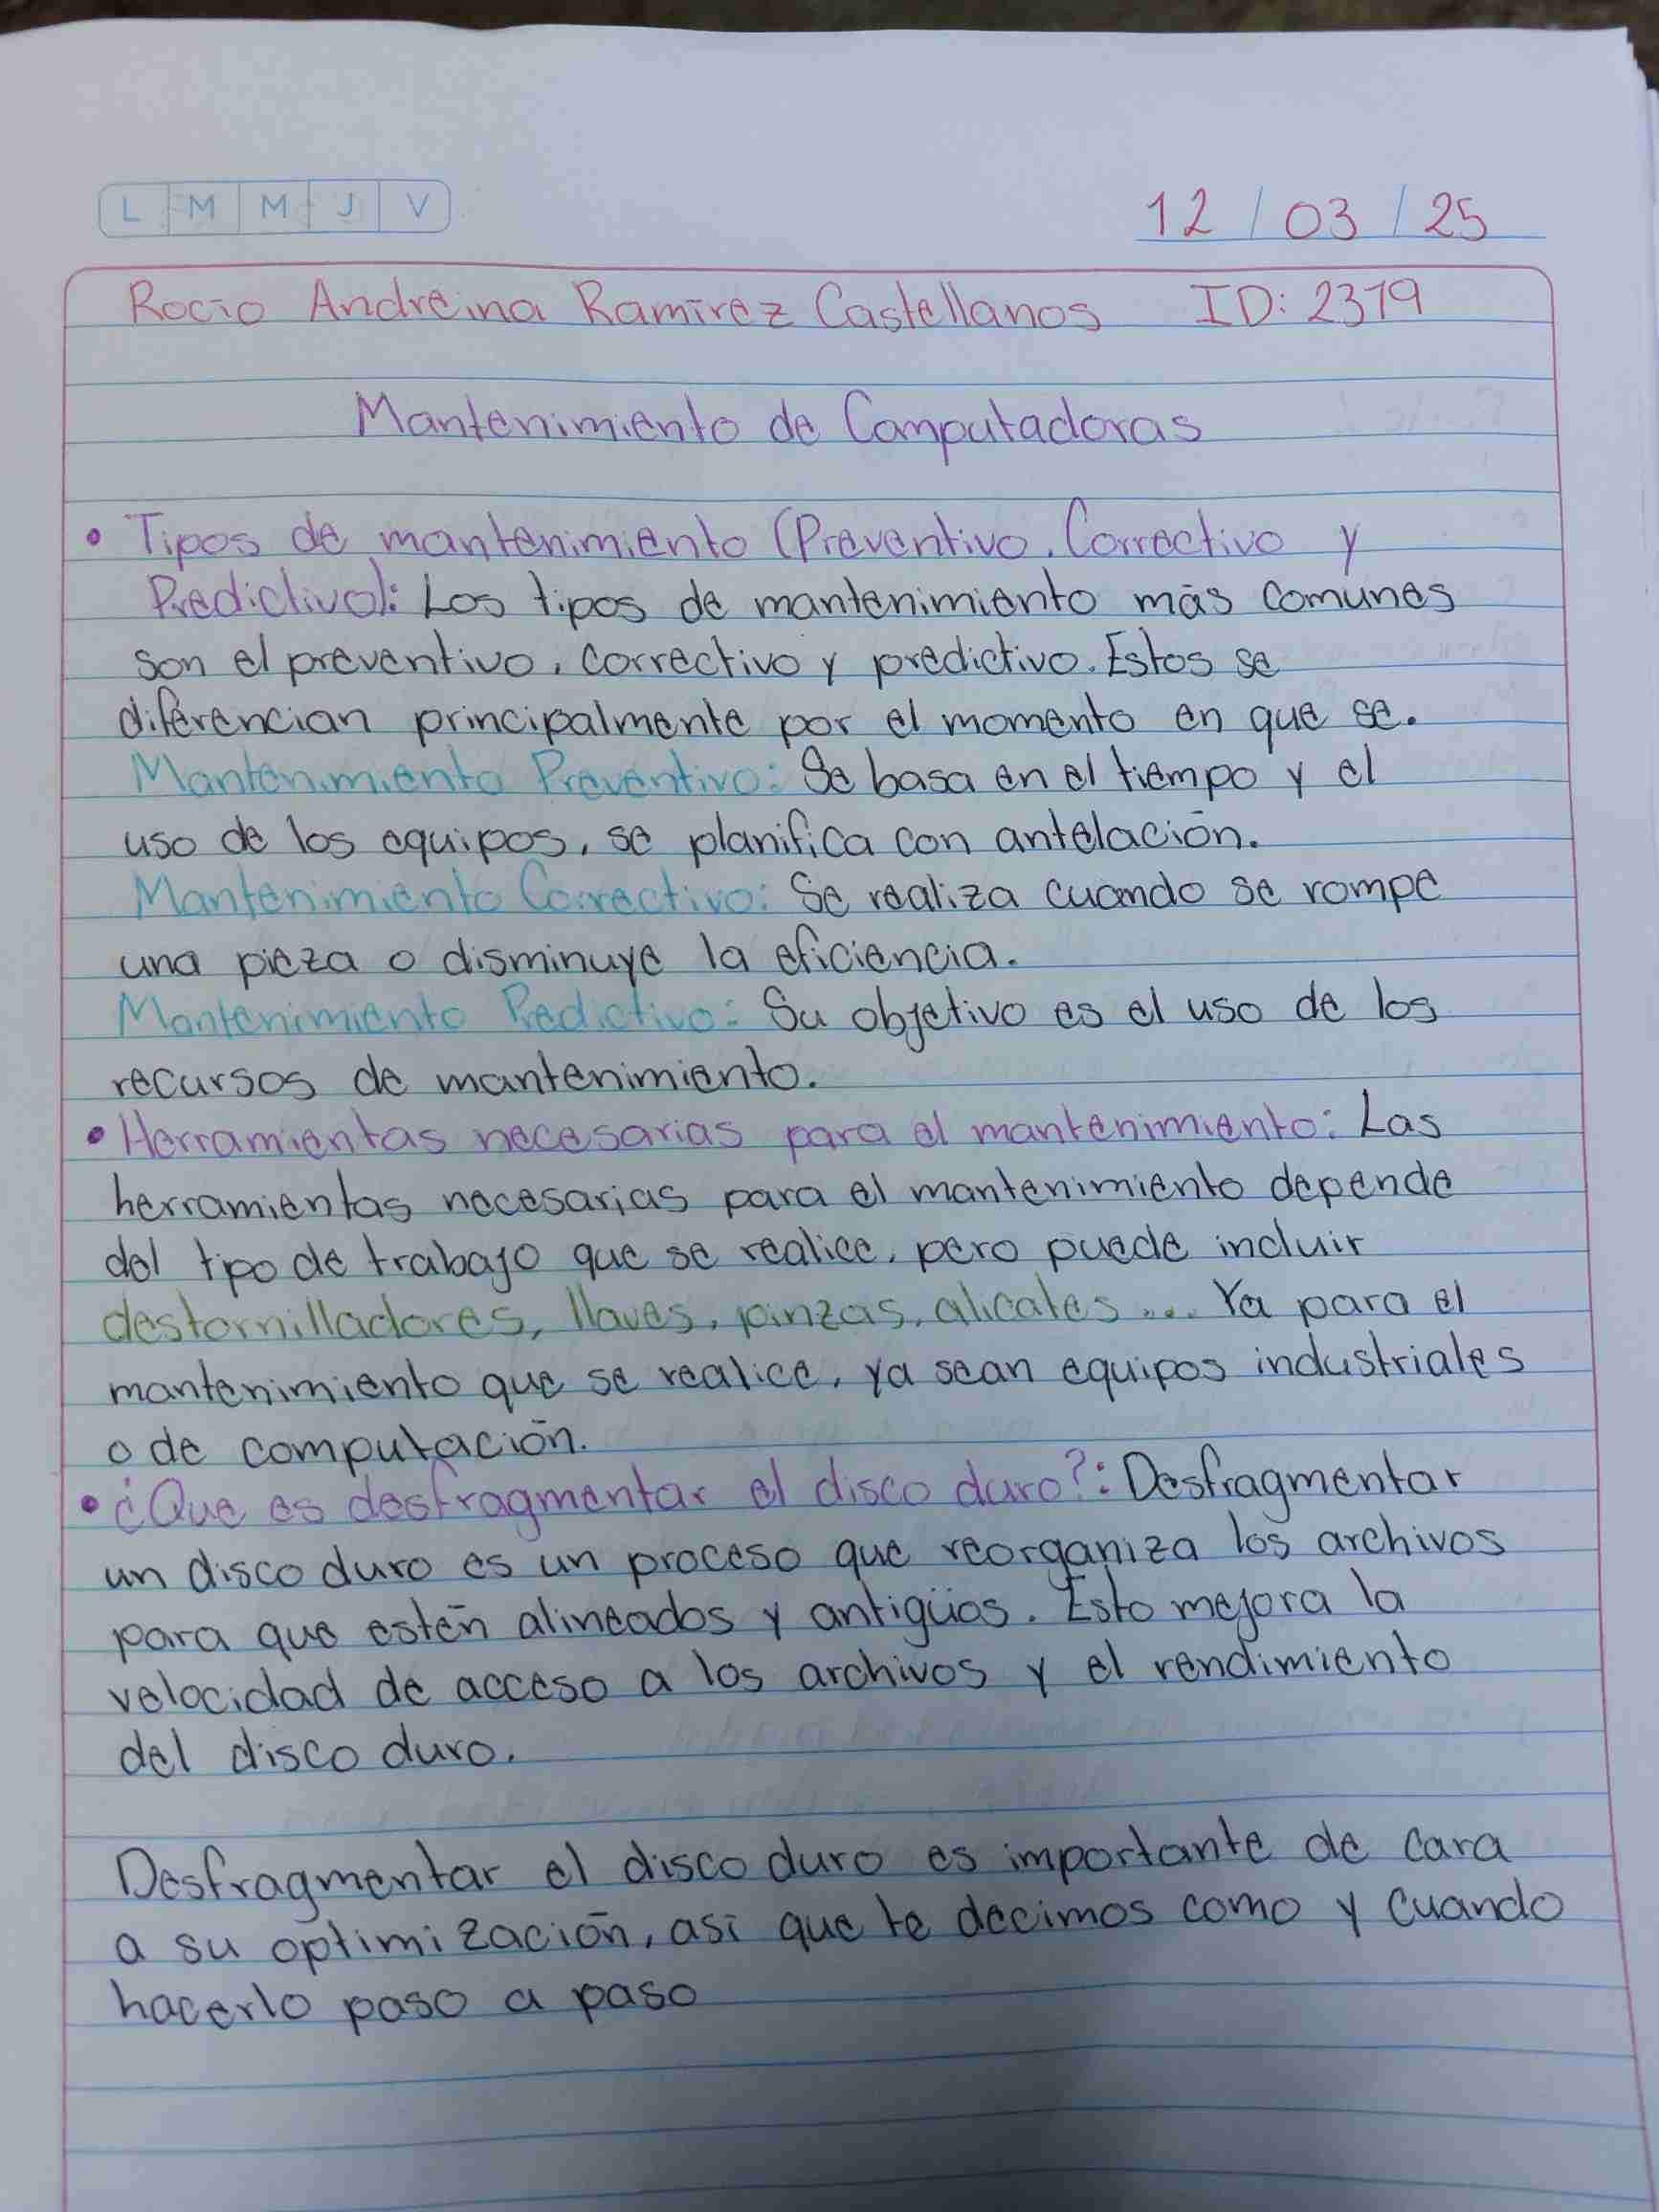 L M M J V
12 / 03 / 25
Rocio Andreina Ramirez Castellanos ID: 2379
Mantenimiento de Computadoras
• Tipos de mantenimiento (Preventivo, Correctivo y
Predictivo): Los tipos de mantenimiento más comunes
son el preventivo, correctivo y predictivo. Estos se
diferencian principalmente por el momento en que se.
Mantenimiento Preventivo: Se basa en el tiempo y el
uso de los equipos, se planifica con antelación.
Mantenimiento Correctivo: Se realiza cuando se rompe
una pieza o disminuye la eficiencia.
Mantenimiento Predictivo: Su objetivo es el uso de los
recursos de mantenimiento.
• Herramientas necesarias para el mantenimiento: Las
herramientas necesarias para el mantenimiento depende
del tipo de trabajo que se realice, pero puede incluir
destornilladores, llaves, pinzas, alicates... Ya para el
mantenimiento que se realice, ya sean equipos industriales
o de computación.
• ¿Que es desfragmentar el disco duro?: Desfragmentar
un disco duro es un proceso que reorganiza los archivos
para que estén alineados y antigüos. Esto mejora la
velocidad de acceso a los archivos y el rendimiento
del disco duro.
Desfragmentar el disco duro es importante de cara
a su optimización, así que te decimos como y cuando
hacerlo paso a paso